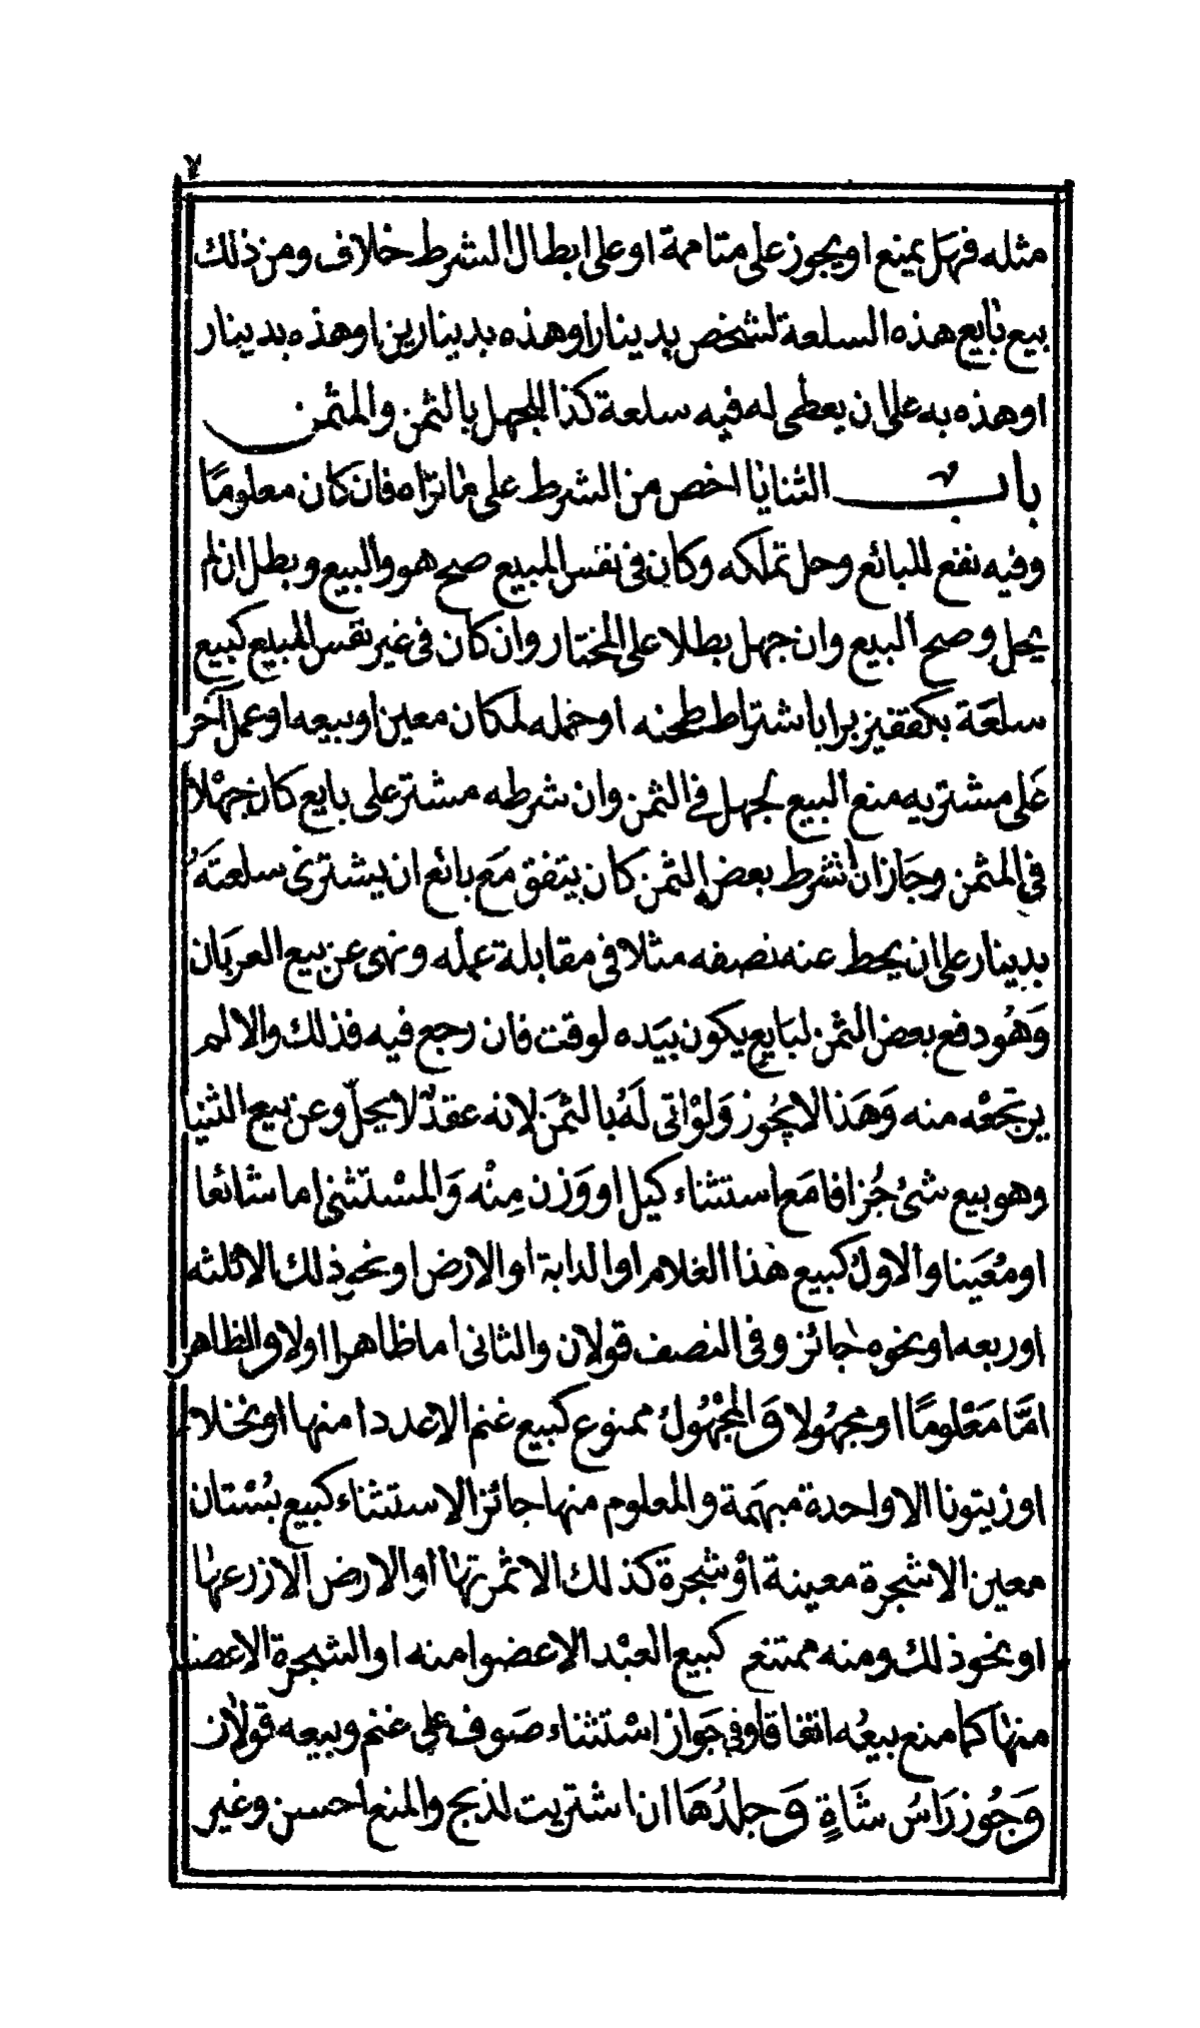 ٧
مثله فهل يمنع او يجوز على متاممة او على ابطال الشرط خلاف ومن ذلك
بيع بايع هذه السلعة لشخص بدينار او هذه بدينارين او هذه بدينار
او هذه به على ان يعطى له فيه سلعة كذا للجهل بالثمن والمثمن
باب الثنايا اخص من الشرط على ما تراه فان كان معلومًا
وفيه نفع للبائع وحل تملكه وكان فى نفس المبيع صح هو والبيع وبطل ان لم
يحل وصح البيع وان جهل بطلا على المختار وان كان فى غير نفس المبيع كبيع
سلعة بكقفيز برا باشتراط طحنه او حمله لمكان معين او بيعه او عمل آخر
عَلى مشتريه منع البيع لجهل فى الثمن وان شرطه مشتر على بايع كان جهْلا
فى المثمن وجَاز ان شرط بعض الثمن كان يتفق مَع بائع ان يشترى سلعتَهُ
بدينار على ان يحط عنه نصفه مثلا فى مقابلة عمله ونهى عن بيع العربَان
وَهُو دفع بعض الثمن لبَايع يكون بيَده لوقت فان رجع فيه فذلك والا لم
يرتجعْه منه وَهَذا لا يجُوز وَلوْ اتى لَهُ بالثمَن لانه عقدٌ لا يحلّ وعن بيع الثنيا
وهو بيع شئ جُزافا مَع استثناء كيل او وَزن مِنْه وَالمسْتثنى اما شائعا
او مُعَينا والاول كبيع هذا الغلام او الدابة او الارض او نحو ذلك الا ثلثه
او ربعه او نحوه جائز وفى النصف قولان والثانى اما ظاهرا اولا والظاهر
امَّا مَعْلومًا او مجهُولا وَالمجْهُول ممنوع كبيع غنم الا عددا منها او نخلا
او زيتونا الا واحدة مبهَمة والمعلوم منها جائز الاستثناء كبيع بسْتان
معين الا شجرة معينة اوْ شجرة كذلك الا ثمرتها او الارض الا زرعها
او نحو ذلك ومنه ممتنع كبيع العبْد الا عضوا منه او الشجرة الا غصنا
منها كما منع بيعُه اتفاقا وفى جَواز اسْتثناء صَوف على غنم وبيعه قولان
وَجُوز رَاسُ شَاةٍ وَجلدُهَا ان اشتريت لذبح والمنع احسن وغير